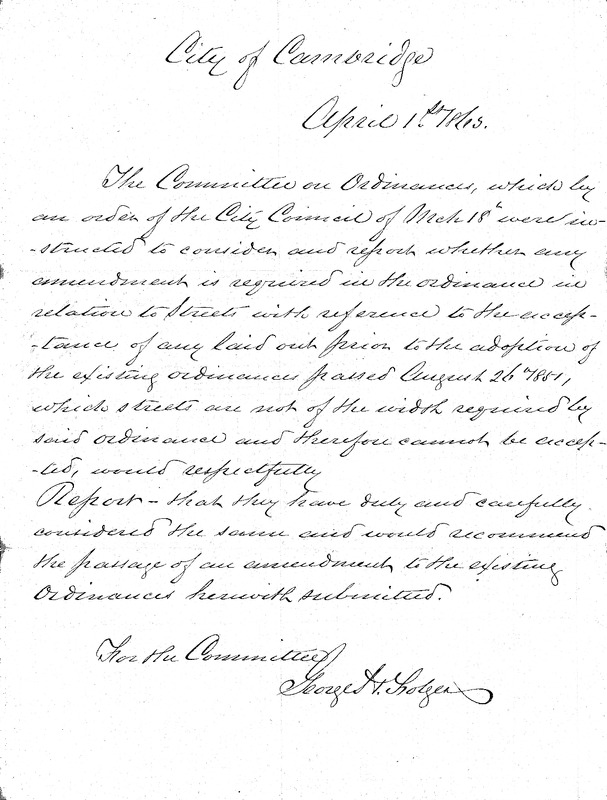 City of Cambridge
April 1st 1863.
The Committee on Ordinances, which by
an order of the City Council of Mch 18th were in-
-structed to consider and report whether any
amendment is required in the ordinance in
relation to Streets with reference to the accep-
-tance of any laid out prior to the adoption of
the existing ordinances passed August 26th 1851,
which streets are not of the width required by
said ordinance and therefore cannot be accep-
-ted, would respectfully
Report – that they have duly and carefully
considered the same and would recommend
the passage of an amendment to the existing
Ordinances herewith submitted.
For the Committee
George